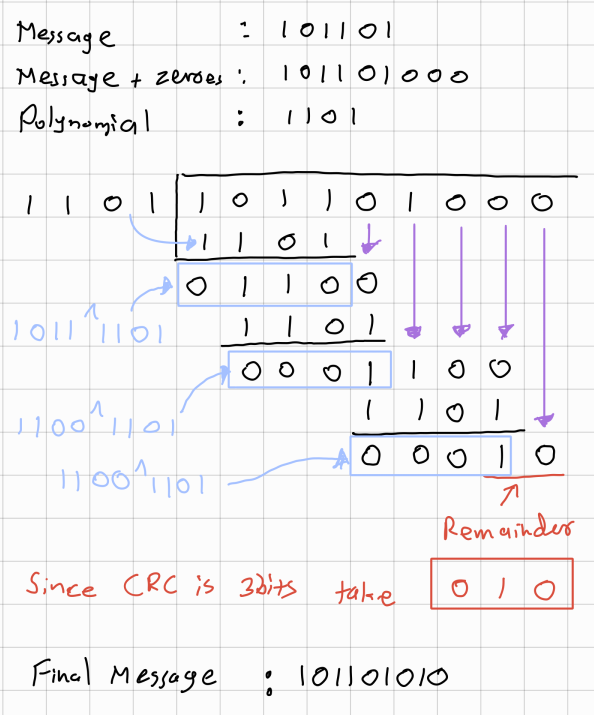 Message : 101101
Message + zeroes : 101101000
Polynomial : 1101
1 1 0 1 1 0 1 1 0 1 0 0 0
1 1 0 1
0 1 1 0 0
1011^1101
1 1 0 1
0 0 0 1 1 0 0
1100^1101
1 1 0 1
0 0 0 1 0
1100^1101
Remainder
Since CRC is 3bits take 0 1 0
Final Message : 101101010